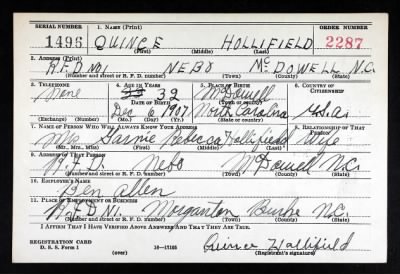 SERIAL NUMBER 1. NAME (Print) ORDER NUMBER
1496 QUINCE HOLLIFIELD 2287
(First) (Middle) (Last)
2. ADDRESS (Print)
R.F.D No1 NEBO McDOWELL N.C.
(Number and street or R. F. D. number) (Town) (County) (State)
3. TELEPHONE 4. AGE IN YEARS 5. PLACE OF BIRTH 6. COUNTRY OF CITIZENSHIP
None 33 32 McDowell
DATE OF BIRTH (Town or county)
Dec 6 1907 North Carolina U.S.a.
(Mo.) (Day) (Yr.) (State or country)
7. NAME OF PERSON WHO WILL ALWAYS KNOW YOUR ADDRESS 8. RELATIONSHIP OF THAT PERSON
Mrs Rebecca Hollifield Wife
(Mr., Mrs., Miss) (First) (Middle) (Last)
9. ADDRESS OF THAT PERSON
R.F.D No1 Nebo McDowell N.C.
(Number and street or R. F. D. number) (Town) (County) (State)
10. EMPLOYER'S NAME
Ben Allen
11. PLACE OF EMPLOYMENT OR BUSINESS
R.F.D No1 Morganton Burke N.C.
(Number and street or R. F. D. number) (Town) (County) (State)
I AFFIRM THAT I HAVE VERIFIED ABOVE ANSWERS AND THAT THEY ARE TRUE.
REGISTRATION CARD
D. S. S. Form 1 (over) 16—17105 Quince Hollifield